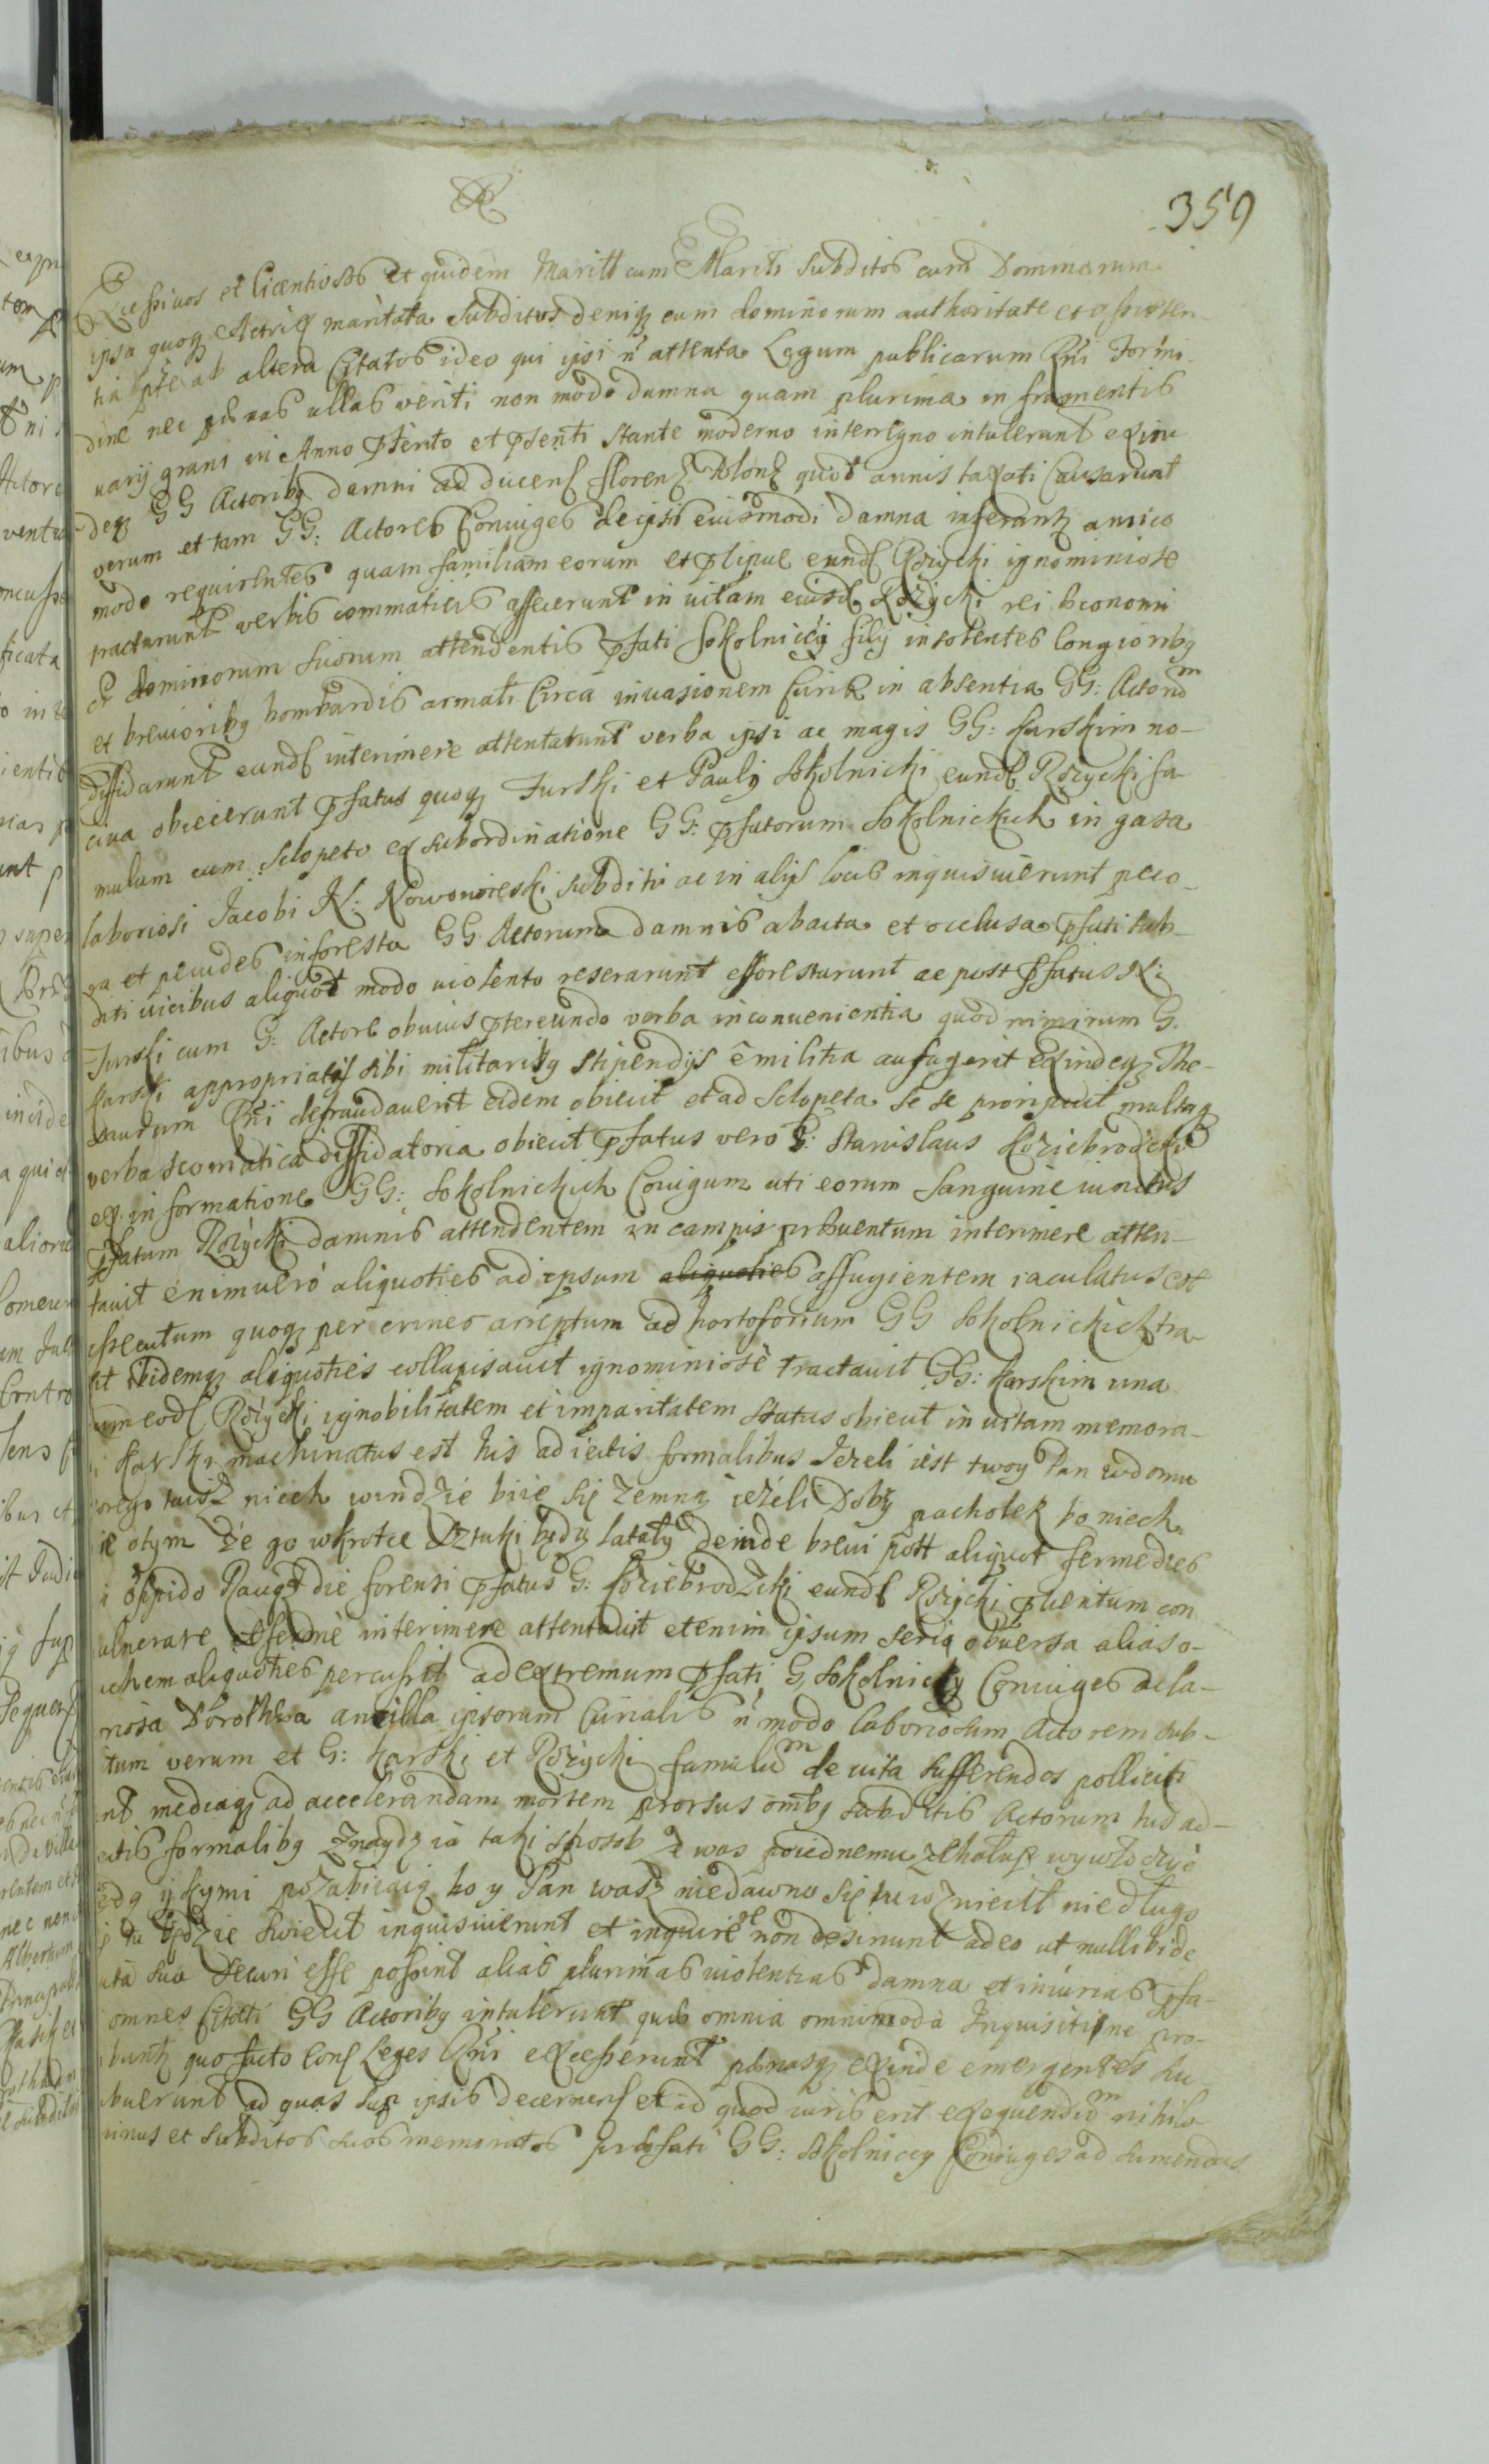 359
Excessivos et licentiosos et quidem Maritt cum Mariti subditos cum Dominorum
ipsa quoq Actricq maritata subditos deniq cum dominorum authoritate et assisten-
tia pte ab altera Citatos ideo qui ipsi n attenta Legum publicarum Rni Formi-
dine nec pænas ullas veriti non modo damna quam plurima in frumentis
varij grani in Anno pterito et psenti stante moderno interregno intulerunt exin
deq GG Actoribq damni ad ducens florenz Polonz quot annis taxati Causarunt
verum et tam GG: Actores Coniuges de ipsis eiusmodi damna inferantz amico
modo requirentes quam familiam eorum et pcipue eund Rozycki ignominiose
tractarunt verbis commaticis affecerunt in vitam eiusd Rożycki rei œconomi
et dominorum suorum attendentis pfati Sokolnicij filij insolentes longioribq
et brevioribq bombardis armati Circa invasionem Curiæ in absentia GG: Actorum
diffidarunt eund interimere attentarunt verba ipsi ac magis GG: Karskim no-
civa obiecerunt pfatus quoq Turski et Paulq Sokolnicki eund Rozycki fa-
mulum cum sclopeto ex subordinatione GG: pfatorum Sokolnickich in gaza
laboriosi Jacobi N: Nowowieski subditi ac in alijs locis inquisiverunt peco-
ra et pecudes in foresta GG Actorum damnis abacta et occlusa pfati sub-
diti vicibus aliquot modo violento reserarunt efforestarunt ac post pfatus N:
Turski cum G: Actore obvius ptereundo verba inconvenientia quod nimirum G.
Karski appropriatis sibi militaribq stipendijs è militia aufugerit exindeq The-
saurum Rni defraudaverit eidem obiecit et ad sclopeta se se proripuit multaq
verba scomatica diffidatoria obiecit pfatus vero G: Stanislaus Koziebrodzki
ex informatione GG: Sokolnickich Coniugum uti eorum sanguine iunctus
pfatum Rożycki damnis attendentem in campis præventum interimere atten-
tavit enimvero aliquoties ad ipsum aliquoties affugientem iaculatus est
assecutum quoq per crines arreptum ad hortoforium GG Sokolnickich tra-
xit ibidemq aliquoties collapisavit ignominiosè tractavit GG: Karskim una
cum eod Rożycki ignobilitatem et imparitatem status obiecit in vitam memora-
i Karski machinatus est his adiectis formalibus Jezeli iest twoy Pan wdomu
orego tuisz niech windzie biie się zemną ieżeli Dobry pacholek bo niech
ie otym że go wkrotce sztuki będą latały deinde brevi post aliquot ferme dies
i oppido Raugz die forensi pfatus G: Koziebrodzki eund Rożycki pventum con
ulnerare interimere attentavit etenim ipsum serią obversa alias o-
uchem aliquoties percussit ad extremum pfati G Sokolniccy Coniuges ac la-
riosa Dorothea ancilla ipsorum Curialis n modo laboriosum Actorem sub-
tum verum et G: Karski et Rożycki famulum de vita sufferendos polliciti
nt mediaq ad accelerandam mortem prorsus ombq subditis Actorum his ad-
ectis formalibq znaydzia taki sposob ze was poiednemu zchalup wywłoczyć
ędą y kymi pozabiiaią bo y Pan wasz niedawno się tu wzniecił niedługo
tu będzie swiecił inquisiverunt et inquirere non desinunt adeo ut nullibi de
uta sua securi esse possint alias plurimas violentias damna et iniurias pfa-
omnes Citati GG Actoribq intulerunt quæ omnia omnimoda Inquisitione pro-
buntz quo facto Cons Leges Rni excesserunt pænasq exinde emergentes su-
buerunt ad quas sup ipsis decernens et ad quod iuris erit exequendum nihilo
minus et subditos suos memoratos præfati GG: Sokolniccy Coniuges ad sumendas